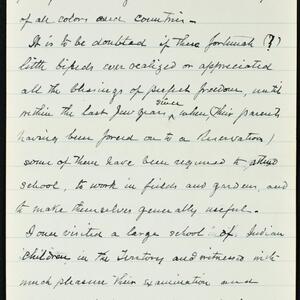 of all colors and countries -
It is to be doubted if these fortunate (?)
little bipeds ever realized or appreciated
all the blessings of perfect freedom, until
within the last few years ^since when (their parents
having been forced on to a Reservation)
some of them have been required to attend
school, to work in fields and gardens, and
to make themselves generally useful.
I once visited a large school of Indian
children in the Territory and witnessed with
much pleasure their examination and